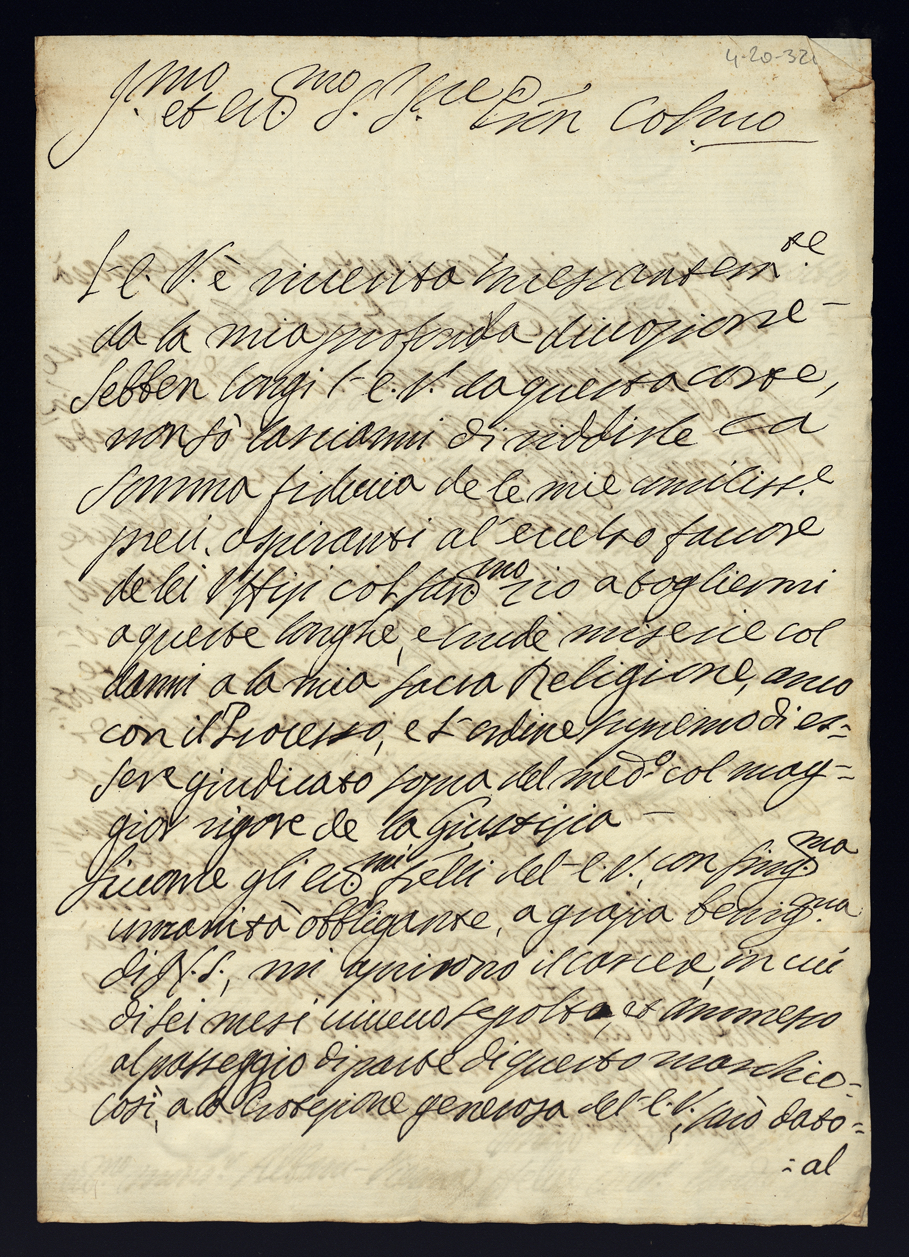 4-20-32
Ill.mo et ecc.mo S.r S.re e P.ron Col.mo
L'e. V. è riuerita incessantem.te
da la mia profonda diuozione
Sebben lungi l'e. V. da questa corte,
non sò lasciarmi di ridirle la
somma fiducia de le mie umiliss.e
preci, aspiranti al'eccelso fauore
de lei Vffizi col suo zio a togliermi
a queste lunghe, e crude miserie col
darmi a la mia sacra Religione, anco
con il Processo, e l'ordine supremo di es=
sere giudicato sopra del med.o col mag=
gior rigore de la Giustizia —
Siccome gli ecc.mi frelli del-l'e. V., con sing.ma
umanità obbligante, a grazia benig.ma
di N. S., mi aprirono il carcere, in cui
di sei mesi viueuo sepolto, et ammesso
al passeggio di parte di questo maschio-
così, a la Protezione generosa del-l'e. V., sarò dato=
=al